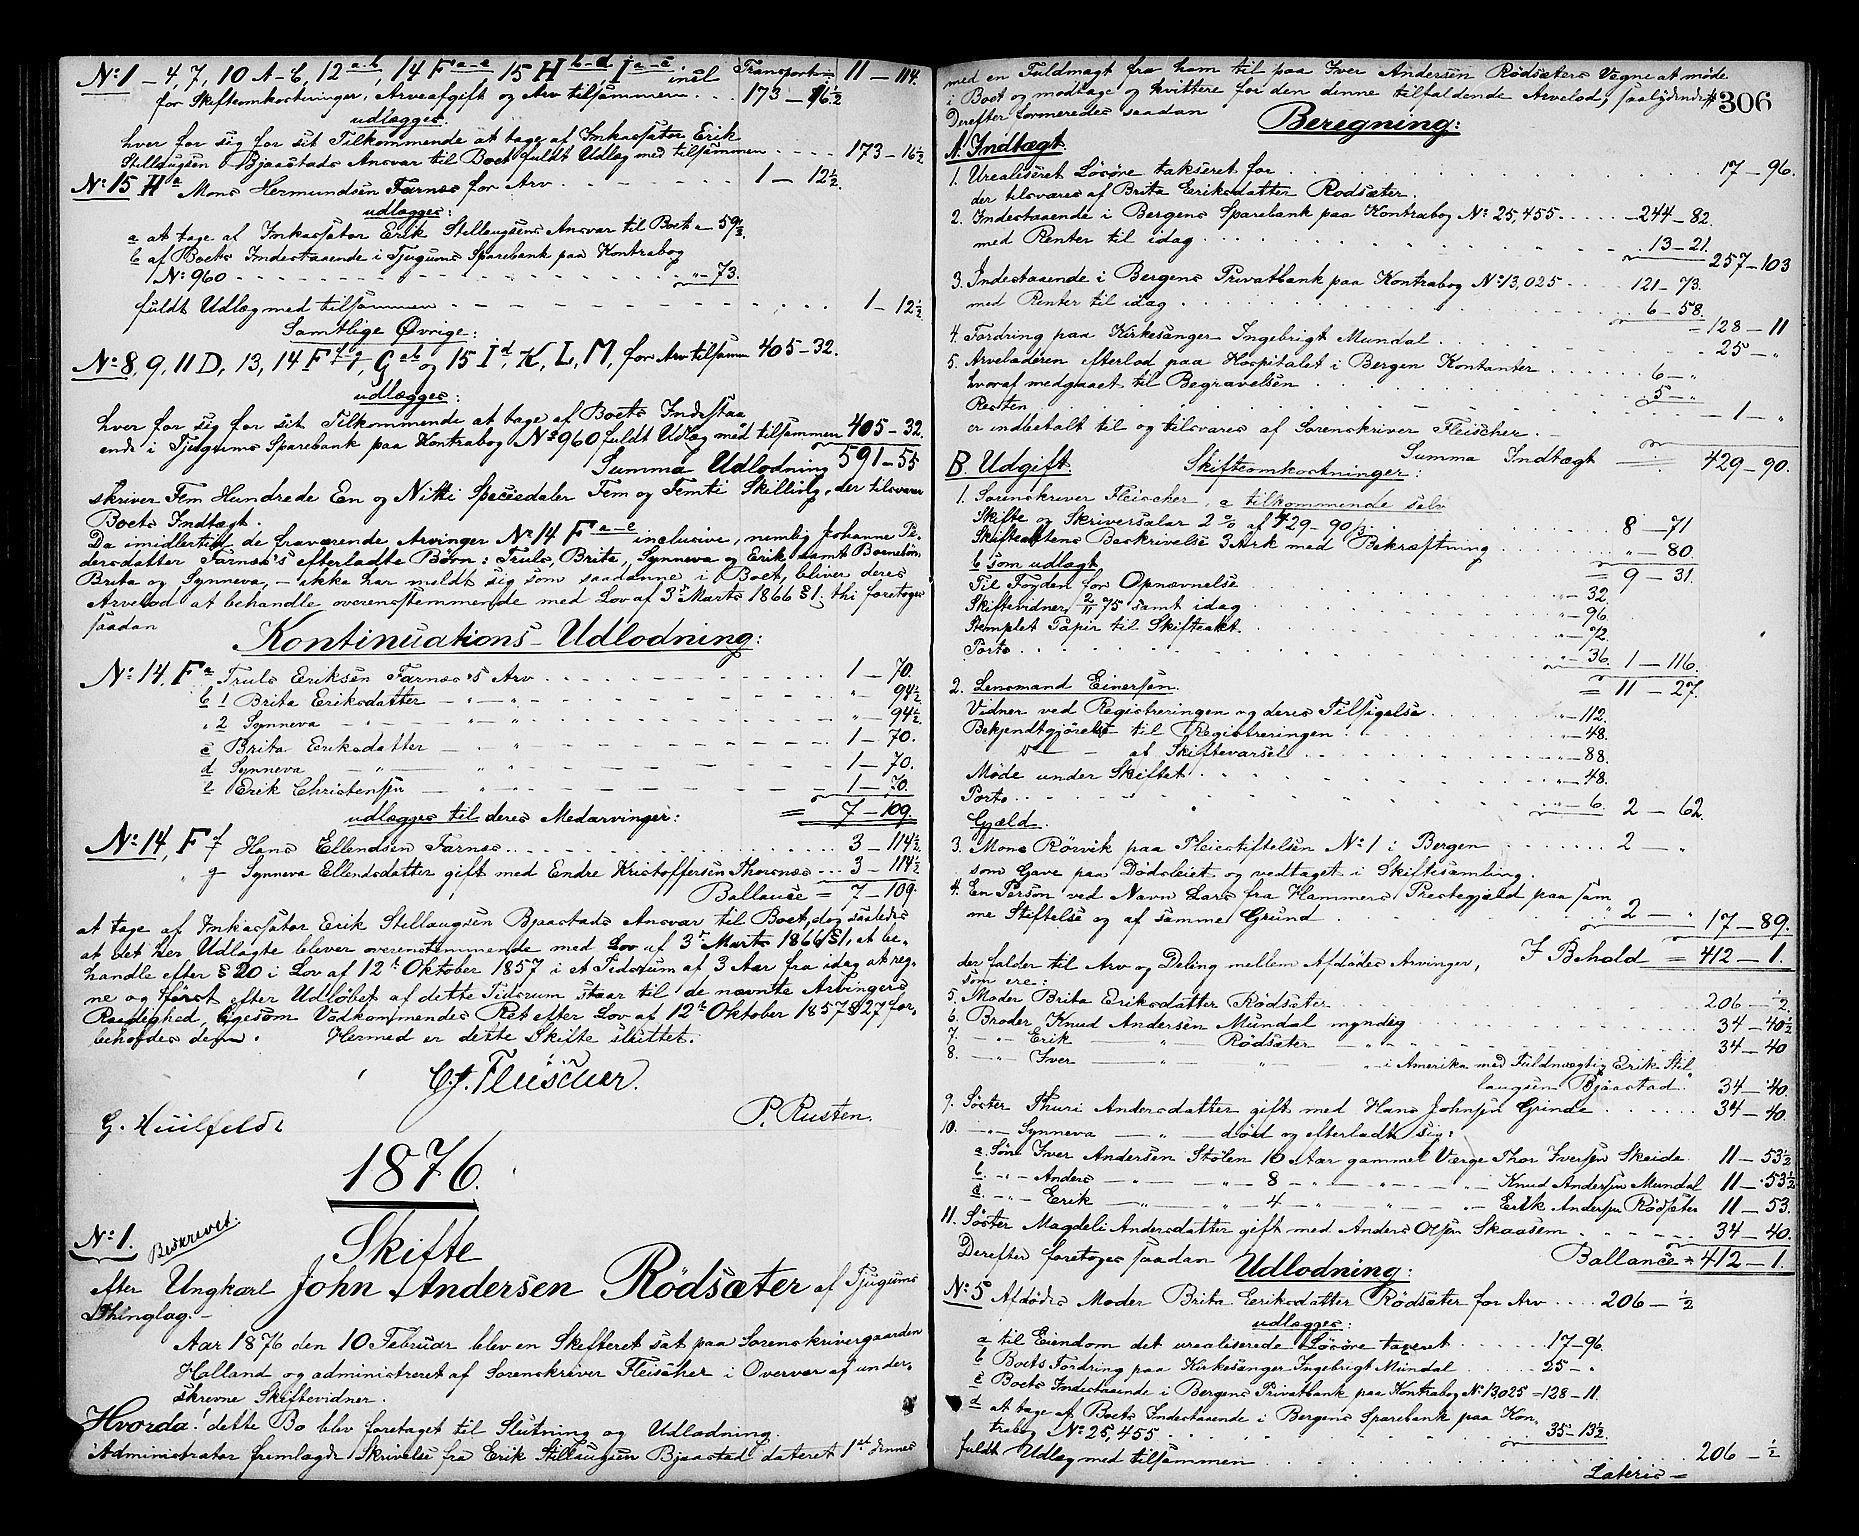 No 1 – 4, 7, 10 A–C, 12 a-b, 14 F a-e, 15 H b-d, I a-c, incl Transport 11 – 114.
for Skifteomkostninger, Arveafgift og Arv tilsammen . . 173 – 16½
udlægges:
hver for sig for sit Tilkommende at tage af Inkassator Erik
Stellaugsen Bjaastads Ansvar til Boet fuldt Udlæg med tilsammen . . . . 173 – 16½
No 15 H a Mons Hermundsen Farnæs for Arv . . . 1 – 12½.
udlægges:
a at tage af Inkassator Erik Stellaugsens Ansvar til Boet
b af Boets Indestaaende i Tjugums Sparebank paa Kontrabog
No 960 " – 73.
fuldt Udlæg med tilsammen 1 – 12½
Samtlige Øvrige:
No 8, 9, 11 D, 13, 14 F f-g, G a-b og 15 I d, K, L, M, for Arv tilsamm 405 – 32.
udlægges:
hver for sig for sit Tilkommende at tage af Boets Indestaa
ende i Tjugums Sparebank paa Kontrabog No 960 fuldt Udlæg med tilsammen 405 – 32.
Summa Udlodning 591 – 55
skriver Fem Hundrede En og Nitti Speciedaler Fem og Femti Skilling, der tilsvarer
Boets Indtægt.
Da imidlertid de fraværende Arvinger No 14 F a–e inclusive, nemlig Johanne Pe-
dersdatter Farnæs's efterladte Børn: Truls, Brita, Synneva og Erik samt Børnebørn
Brita og Synneva, – ikke har meldt sig som saadanne i Boet, bliver deres
Arvelod at behandle overensstemmende med Lov af 3 Marts 1866 § 1, thi foretoges
saadan
Kontinuations-Udlodning:
No 14, F a Truls Eriksen Farnæs's Arv 1 – 70.
b 1 Brita Eriksdatter – " – " – 94½
" 2 Synneva – " – " – 94½.
c Brita Eriksdatter – " 1 – 70.
d Synneva – " – 1 – 70.
e Erik Christensen – " 1 – 70.
udlægges til deres Medarvinger: = 7 – 109.
No 14, F f Hans Ellendsen Farnæs 3 – 114½
" g Synneva Ellendsdatter gift med Endre Kristoffersen Thorsnæs . . . 3 – 114½
Ballance = 7 – 109.
at tage af Inkassator Erik Stellaugsen Bjaastads Ansvar til Boet, dog saaledes
at det her Udlagte bliver overenstemmende med Lov af 3 Marts 1866 § 1, at be-
handle efter § 20 i Lov af 12te Oktober 1857 i et Tidsrum af 3 Aar fra idag at reg-
ne og først efter Udløbet af dette Tidsrum staar til de nævnte Arvingers
Raadighed, ligesom Vedkommendes Ret efter Lov af 12te Oktober 1857 § 27 for-
beholdes dem. Hermed er dette Skifte sluttet.
Fleischer.
G. Huitfeldt P. Rusten.
1876.
No 1. Beskrevet.
Skifte
efter Ungkarl John Andersen Rödsæter af Tjugums
Thinglag.
Aar 1876 den 10 Februar blev en Skifteret sat paa Sorenskrivergaarden
Holland og administreret af Sorenskriver Fleischer i Overvær af under-
skrevne Skiftevidner.
Hvorda! dette Bo blev foretaget til Slutning og Udlodning.
Administrator fremlagde Skrivelse fra Erik Stellaugsen Bjaastad dateret 1st dennes
306
med en Fuldmagt fra ham til paa Iver Andersen Rödsæters Vegne at møde
i Boet og modtage og kvittere for den denne tilfaldende Arvelod, saalydende
Derefter formeredes saadan Beregning:
A. Indtægt.
1. Urealiseret Løsøre takseret for 17 – 96.
der tilsvares af Brita Eriksdatter Rodsæter.
2. Indestaaende i Bergens Sparebank paa Kontrabog No 25,455 244 – 82.
med Renter til idag 13 – 21. 257 – 103
3. Indestaaende i Bergens Privatbank paa Kontrabog No 13,025 121 – 73.
med Renter til idag 6 – 58. = 128 – 11
4. Fordring paa Kirkesanger Ingebrigt Mundal 25 – "
5. Arveladeren efterlod paa Hospitalet i Bergen Kontanter 6 – "
hvoraf medgaaet til Begravelsen 5 – "
Resten 1 – "
er indbetalt til og tilsvares af Sorenskriver Fleischer. –
Summa Indtægt 429 – 90.
B. Udgift. Skifteomkostninger:
1. Sorenskriver Fleischer, a tilkommende selv
Skifte og Skriversalar 2 % af 429 – 90 ß 8 – 71
Skifteaktens Beskrivelse 3 Ark med Bekræftning " – 80.
b som udlagt = 9 – 31.
Til Fogden for Opnævnelse " – 32.
Skiftevidner 2/11 75 samt idag " – 96.
Stemplet Papir til Skifteakt " – 72.
Porto " – 36. 1 – 116.
2. Lensmand Einersen. = 11 – 27.
Vidner ved Registreringen og deres Tilsigelse " – 112.
Bekjendtgjørelse til Registreringen " – 48.
do – af Skiftevarsel " – 88.
Møde under Skiftet " – 48.
Porto " – 6. 2 – 62.
Gjæld.
3. Mons Rörvik paa Pleiestiftelsen No 1 i Bergen 2 – "
som Gave paa Dødsleiet og vedtaget i Skiftesamling.
4. En Person ved Navn Lars fra Hammers Prestegjæld paa sam
me Stiftelse og af samme Grund 2 – " 17 – 89.
I Behold = 412 – 1.
der falder til Arv og Deling mellem Afdødes Arvinger,
som ere:
5. Moder Brita Eriksdatter Rödsæter 206 – ½.
6. Broder Knud Andersen Mundal myndig 34 – 40½
7. – " – Erik – " – Rødsæter – " 34 – 40
8. – " – Iver – " – " – i Amerika med Fuldmægtig Erik Stel
laugsen Bjaastad. 34 – 40.
9. Søster Thuri Andersdatter gift med Hans Johnsen Grinde 34 – 40.
10. – " – Synneva – " – død og efterladt sig:
a. Søn Iver Andersen Stölen 10 Aar gammel Værge Thor Iversen Skeide 11 – 53½
b. – " – Anders – " – " – 8 – " – " – Knud Andersen Mundal 11 – 53½
c. – " – Erik – " – " – 4 – " – " – Erik Andersen Rödsæter 11 – 53.
11. Søster Magdeli Andersdatter gift med Anders Olsen Skaasem 34 – 40.
Ballance = 412 – 1.
Derefter foretoges saadan Udlodning:
No 5 Afdødes Moder Brita Eriksdatter Rödsæter for Arv 206 – ½
udlægges:
a til Eiendom det urealiserede Løsøre taxeret 17 – 96.
b Boets Fordring paa Kirkesanger Ingebrigt Mundal 25 – "
c Boets Indestaaende i Bergens Privatbank paa Kontrabog No 13025 = 128 – 11.
d at tage af Boets Indestaaende i Bergens Sparebank paa Kon-
trabog No 25,455 35 – 13½
fuldt Udlæg med tilsammen 206 – ½
Lateris =